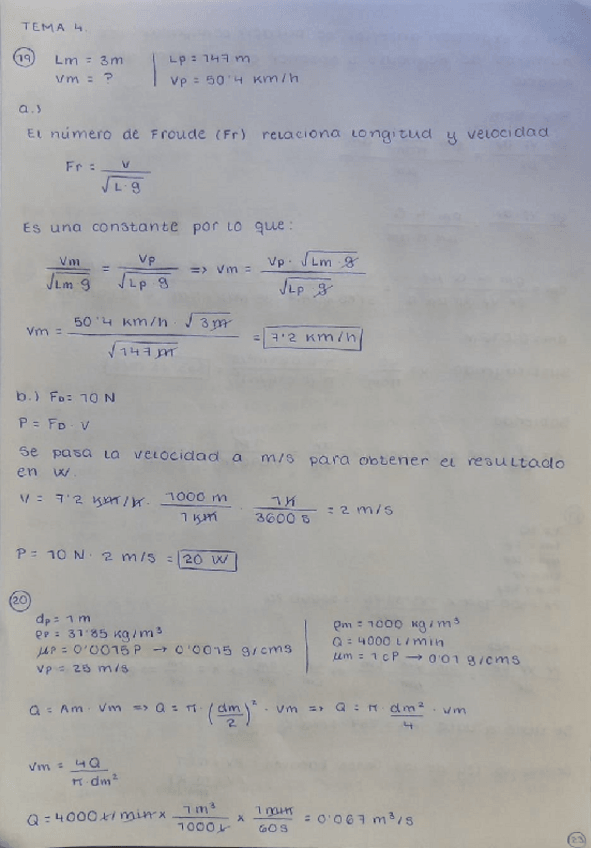 TEMA 4.
19 Lm = 3m | Lp = 147 m
Vm = ? | Vp = 50'4 km/h
a.)
El número de Froude (Fr) relaciona longitud y velocidad
Fr = v / √(L·g)
Es una constante por lo que:
Vm / √(Lm g) = Vp / √(Lp g) => Vm = Vp · √(Lm · g) / √(Lp g)
Vm = 50'4 km/h · √(3m) / √(147m) = 7'2 km/h
b.) FD = 10 N
P = FD · V
Se pasa la velocidad a m/s para obtener el resultado
en W.
V = 7'2 km/h · 1000 m / 1 km · 1h / 3600 s = 2 m/s
P = 10 N · 2 m/s = 20 W
20
dp = 1 m
ρp = 31'85 kg/m³ | ρm = 1000 kg/m³
μp = 0'0015 P → 0'0015 g/cms | Q = 4000 L/min
Vp = 25 m/s | μm = 1 cP → 0'01 g/cms
Q = Am · Vm => Q = π · (dm / 2)² · Vm => Q = π · dm² / 4 · Vm
Vm = 4Q / π · dm²
Q = 4000 L/min × 1 m³ / 1000 L × 1 min / 60s = 0'067 m³/s
23